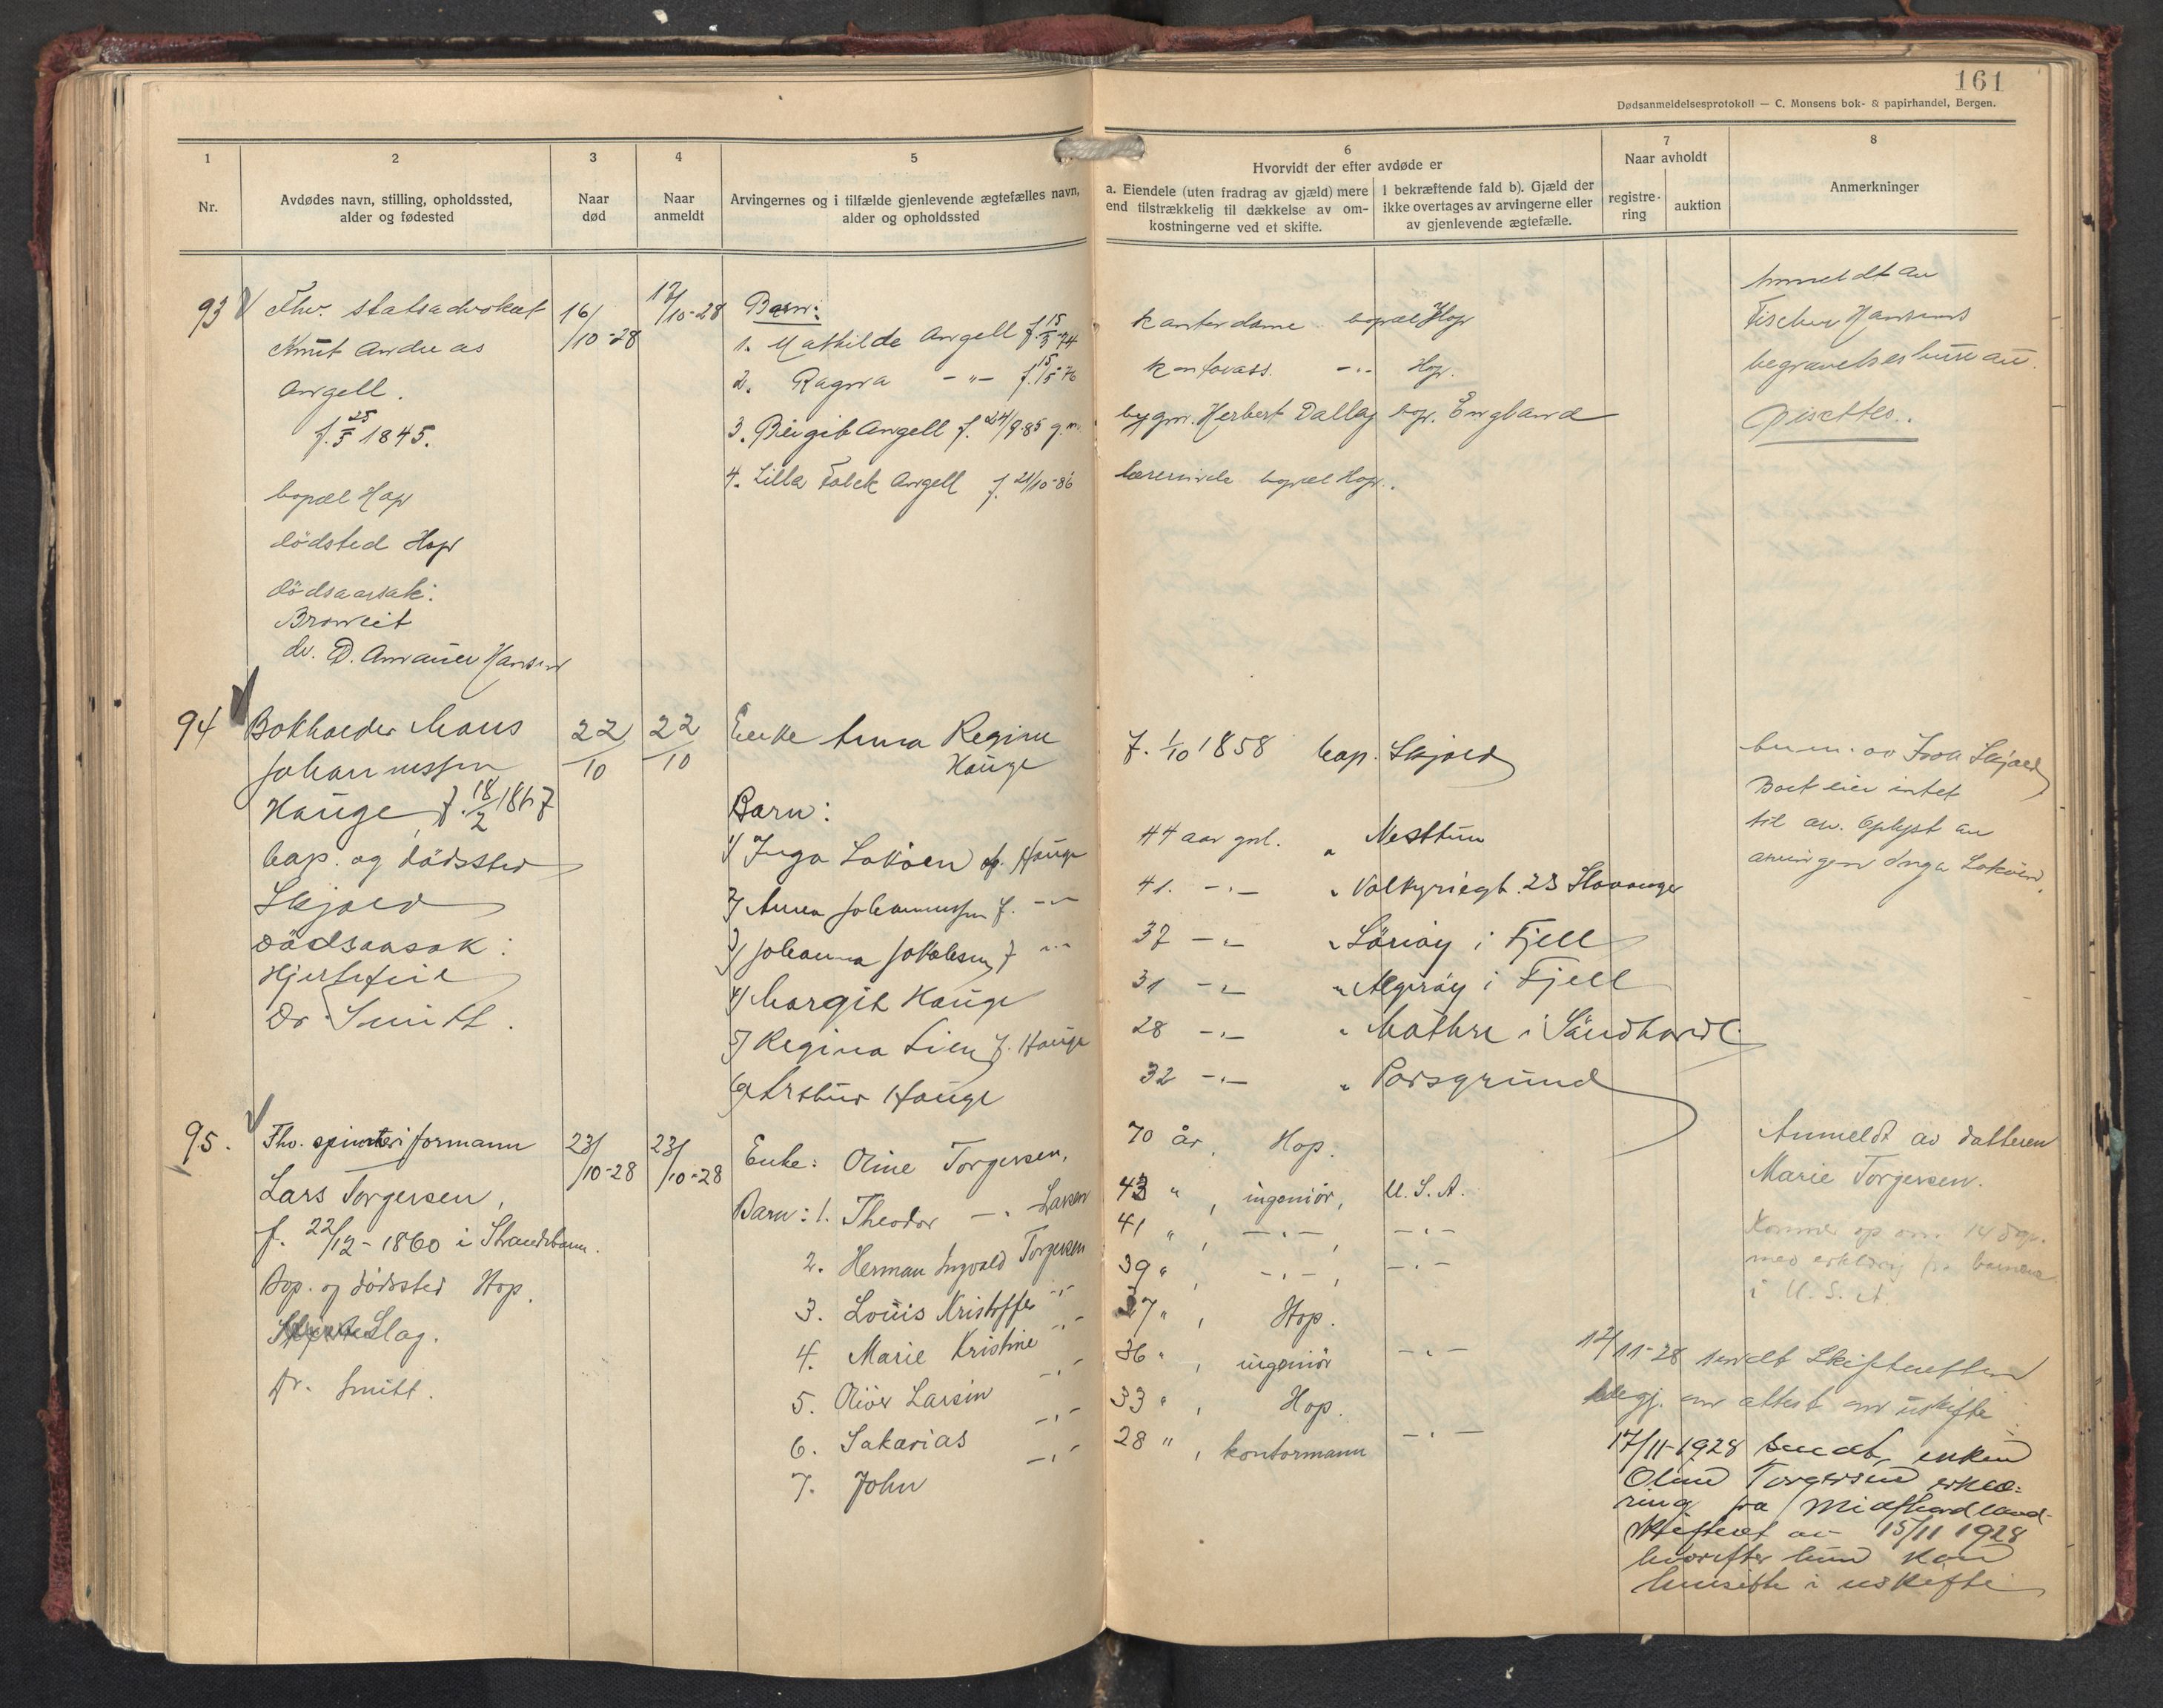 161
Dødsanmeldelsesprotokoll — C. Monsens bok- & papirhandel, Bergen.
1
Nr.
2
Avdødes navn, stilling, opholdssted,
alder og fødested
3
Naar
død
4
Naar
anmeldt
5
Arvingernes og i tilfælde gjenlevende ægtefælles navn,
alder og opholdssted
6
Hvorvidt der efter avdøde er
a. Eiendele (uten fradrag av gjæld) mere
end tilstrækkelig til dækkelse av om-
kostningerne ved et skifte.
I bekræftende fald b). Gjæld der
ikke overtages av arvingerne eller
av gjenlevende ægtefælle.
7
Naar avholdt
registre-
ring
auktion
8
Anmerkninger
93
Fhv. statsadvokat
Knut Andreas
Angell.
f. 25/5 1845.
bopæl Hop
dödsted Hop
dödsaarsak:
dr. D. Hansen
16/10-28
17/10-28
Barn:
1. Mathilde Angell f. 15/3-74
2. Ragna -"- f. 15/5-76
3. Birgit Angell f. 24/9-85 g.m.
4. Lilla Falck Angell f. 21/10-86
kontordame bopæl Hop
kontorass. -"- Hop.
bygm. Herbert Dallag bop. England
lærerinde bopæl Hop.
Anmeldt av
Fischer Hansens
begravelsesbureau.
94
Bokholder Mons
Johannessen
Hauge, f. 18/2 1867
bop. og dödssted
Skjold
Dödsaasak:
Hjertefeil
Dr. Smitt.
22/10
22/10
Enke Anna Regine
Hauge
Barn:
1) Inga Lokøen f. Hauge
2) Anna Johannessen f. -"-
3) Johanna Jakobsen f. -"-
4) Margit Hauge
5) Regina Lien f. Hauge
6) Arthur Hauge
f. 1/10 1858 bop. Skjold
44 aar gml. " Nesttun
41. -"- " Valkyriegt. 23 Stavanger
37 -"- " i Fjell
31 -"- " Algröy i Fjell
28 -"- " Mathre i Söndhordl.
32 -"- " Porsgrund
Skjold
Boet eier intet
til av. Oplyst av
arvingen Inga Lokøen.
95.
Fhv. spinneriformann
Lars Torgersen,
f. 22/12-1860 i Strandebarm.
Bop. og dödssted Hop.
Slag.
Dr. Smitt.
23/10-28
23/10-28
Enke: Oline Torgersen,
Barn: 1. Theodor -"- Larsen
2. Herman Ingvald Torgersen
3. Louis Kristoffer -"-
4. Marie Kristine -"-
5. Oliver Larsin -"-
6. Sakarias -"-
7. John -"-
70 år, Hop.
43 ", ingeniör, U.S.A.
41 ", -"- -"-
39 ", -"-, -"-
37 ", Hop.
36 ", ingeniör -"-
33 ", Hop.
28 ", kontormann -"-
Anmeldt av datteren
Marie Torgersen.
Kommer op om 14 dage
med erklæring fra barnene
i U.S.A.
17/11-28 sendt Skifteretten
begj. om attest om uskifte
17/11-1928 sendt enken
Oline Torgersen erklæ-
ring fra Midthordland
skifteret av 15/11 1928
hvorefter hun kan
hensitte i uskifte